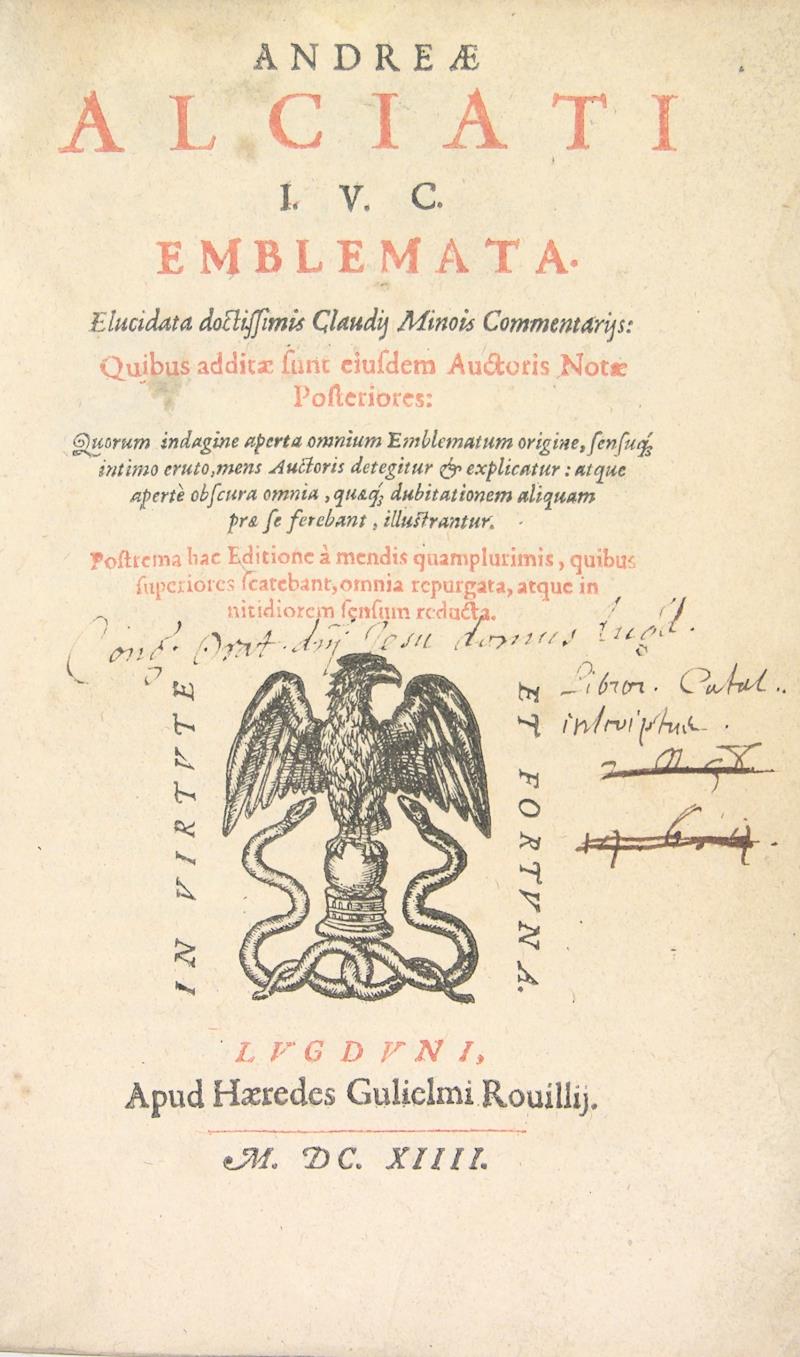 ANDREÆ
ALCIATI
I. V. C.
EMBLEMATA.
Elucidata doctiſſimis Claudij Minois Commentarijs:
Quibus additæ ſunt eiuſdem Auctoris Notæ
Poſteriores:
Quorum indagine aperta omnium Emblematum origine, ſenſuq́;
intimo eruto, mens Auctoris detegitur & explicatur: atque
apertè obſcura omnia, quæq́; dubitationem aliquam
præ ſe ferebant, illuſtrantur.
Poſtrema hac Editione à mendis quamplurimis, quibus
ſuperiores ſcatebant, omnia repurgata, atque in
nitidiorem ſenſum reducta.
Cong. Orat. dnj Jesu domus lugd.
IN VIRTVTE
ET FORTVNA.
Libror. Catal.
LVGDVNI,
Apud Hæredes Gulielmi Rouillij.
M. DC. XIIII.